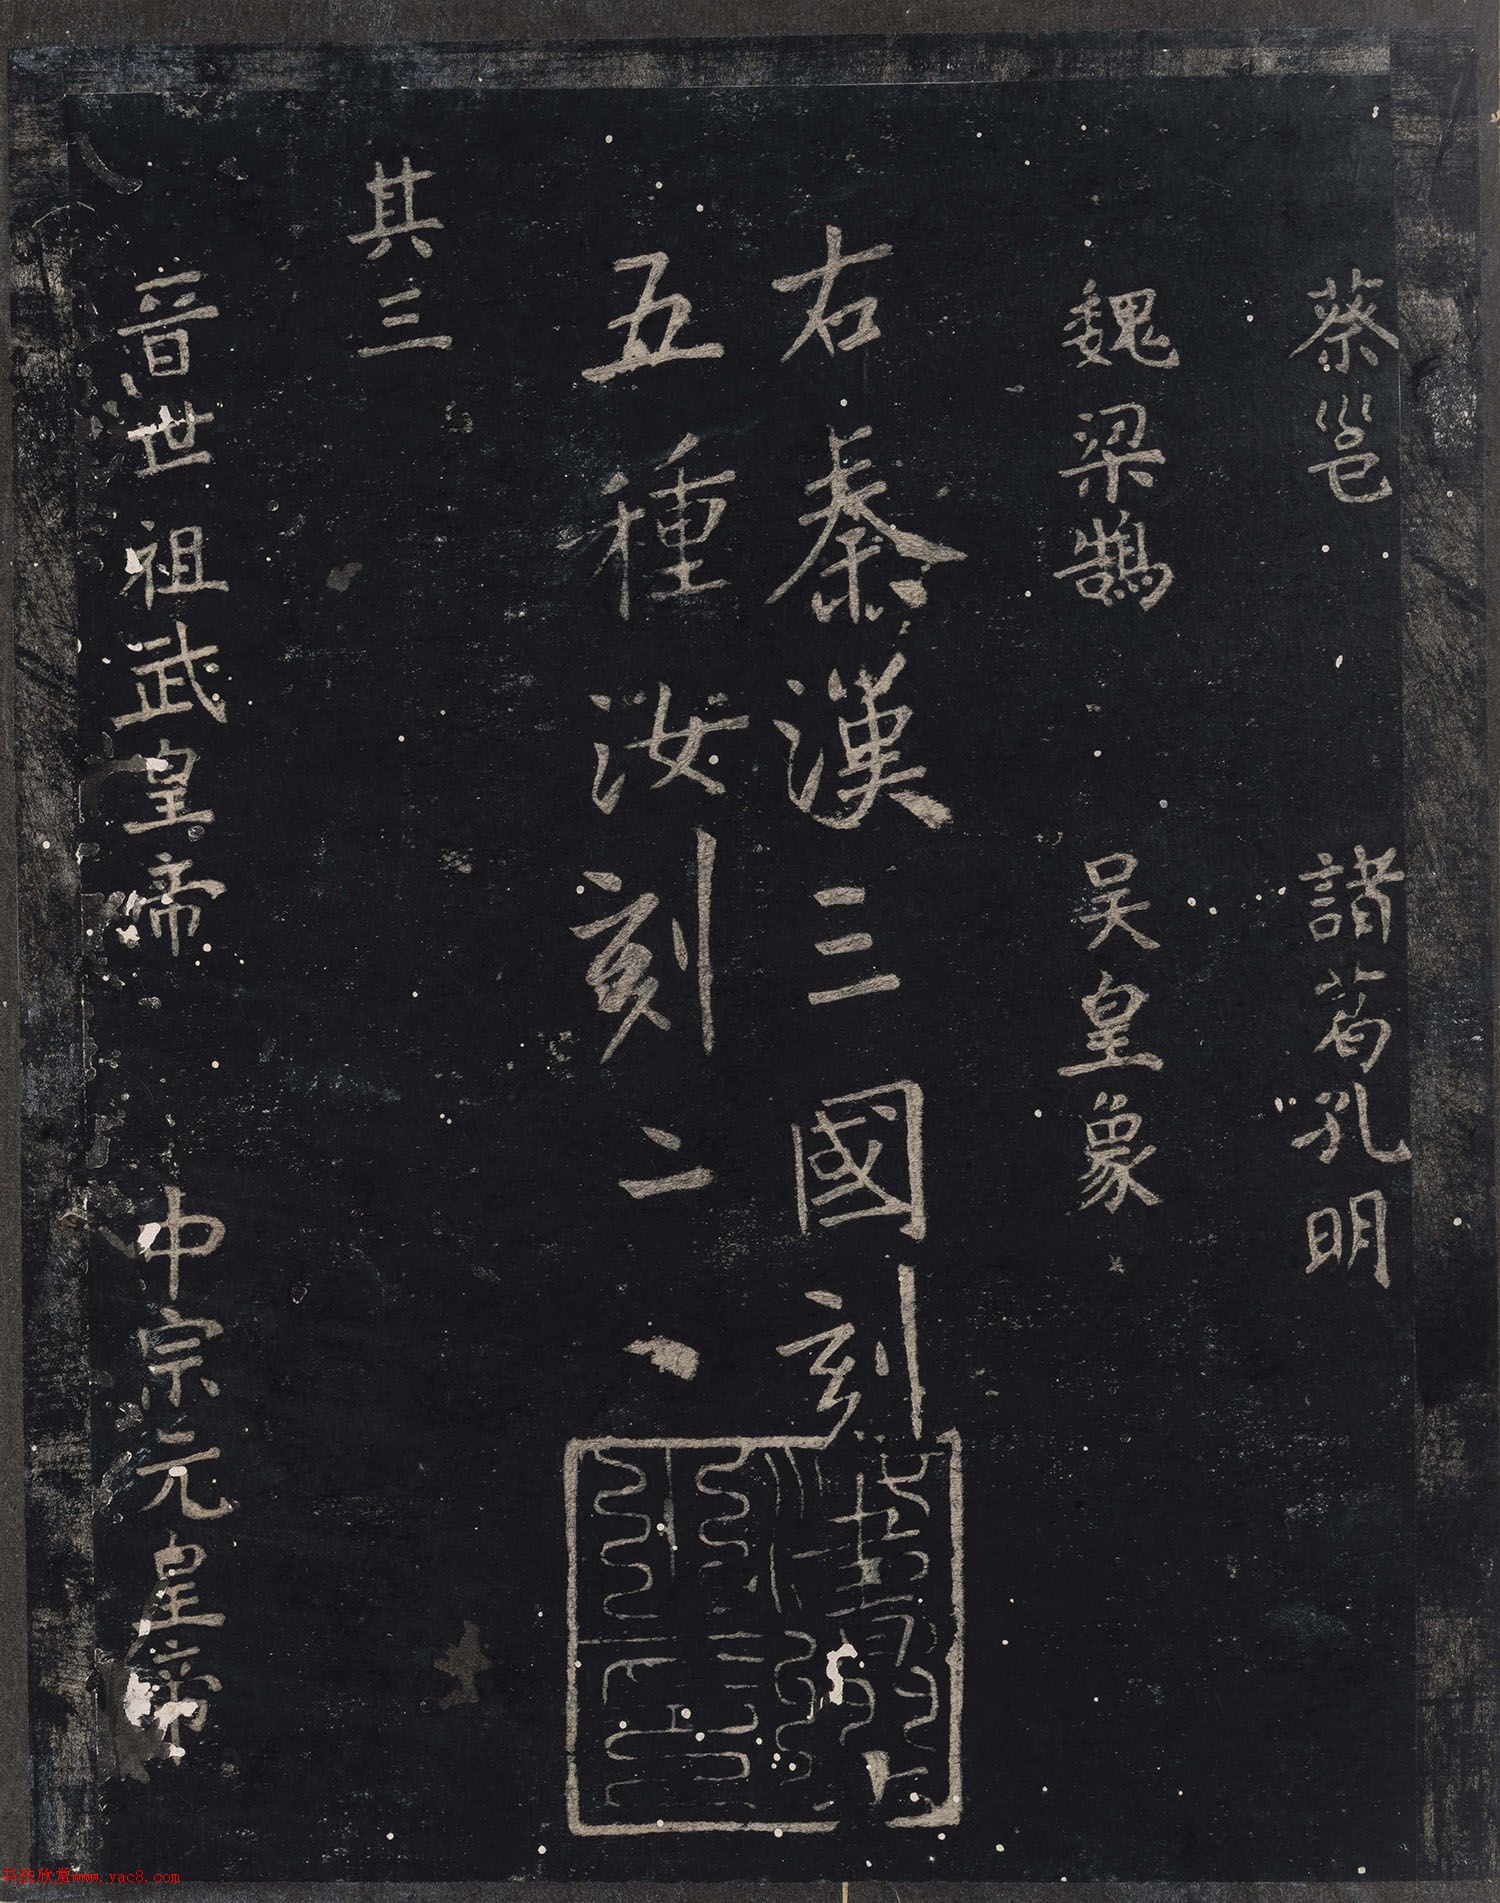 蔡邕 諸葛孔明
魏梁鵠 吴皇象
右秦漢三國刻
五種汝刻二
其三
晉世祖武皇帝 中宗元皇帝
书法欣赏www.yac8.com